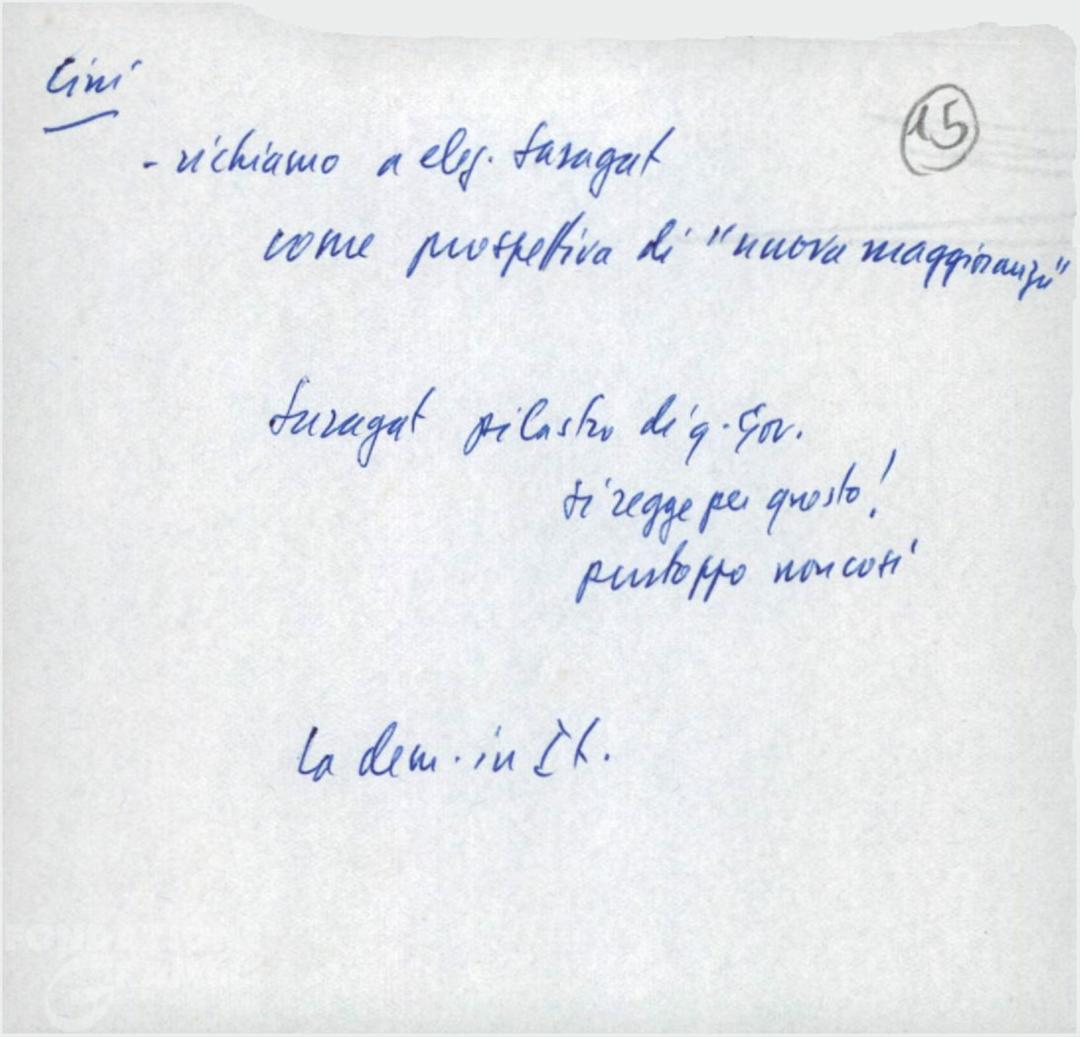 Cini
15
- richiamo a eleg. Saragat
come prospettiva di "nuova maggioranza"
Saragat pilastro di q. Gov.
si regge per questo!
purtoppo non così
La dem. in It.
FONDAZIONE
GRAMSCI